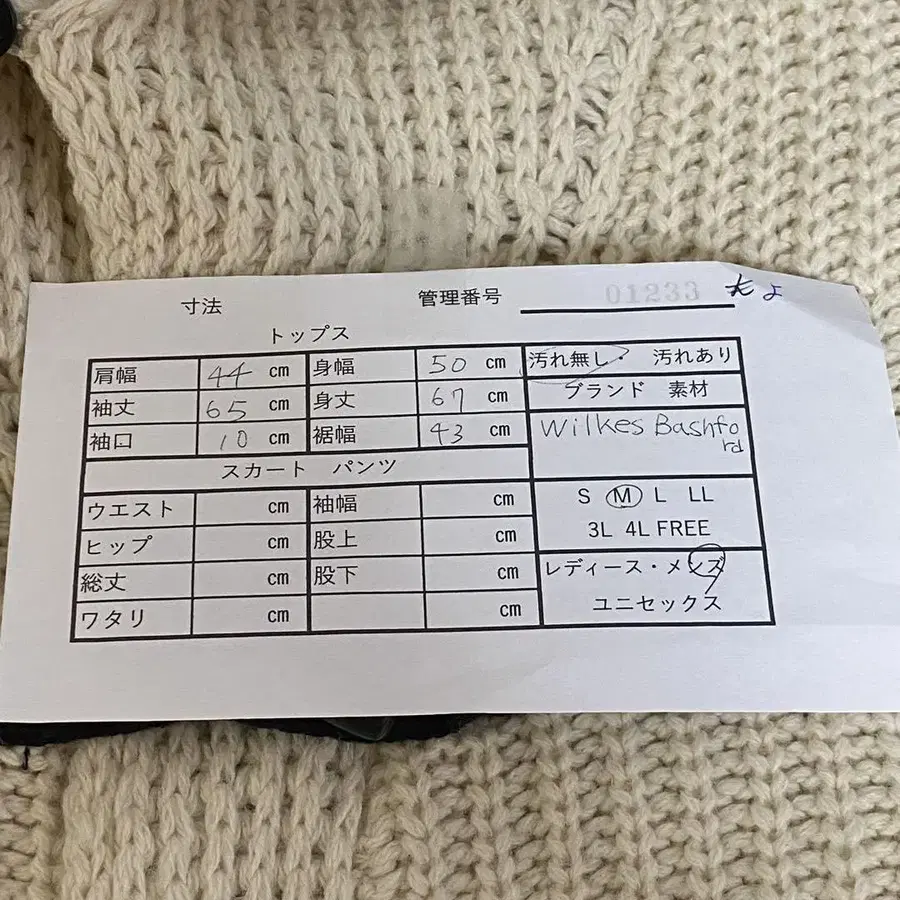 寸法 管理番号 01233 よ
トップス
肩幅 44 cm 身幅 50 cm 汚れ無し・ 汚れあり
袖丈 65 cm 身丈 67 cm ブランド 素材
袖口 10 cm 裾幅 43 cm Wilkes Bashfo
rd
スカート パンツ
ウエスト cm 袖幅 cm S M L LL
ヒップ cm 股上 cm 3L 4L FREE
総丈 cm 股下 cm レディース・メンズ
ワタリ cm cm ユニセックス